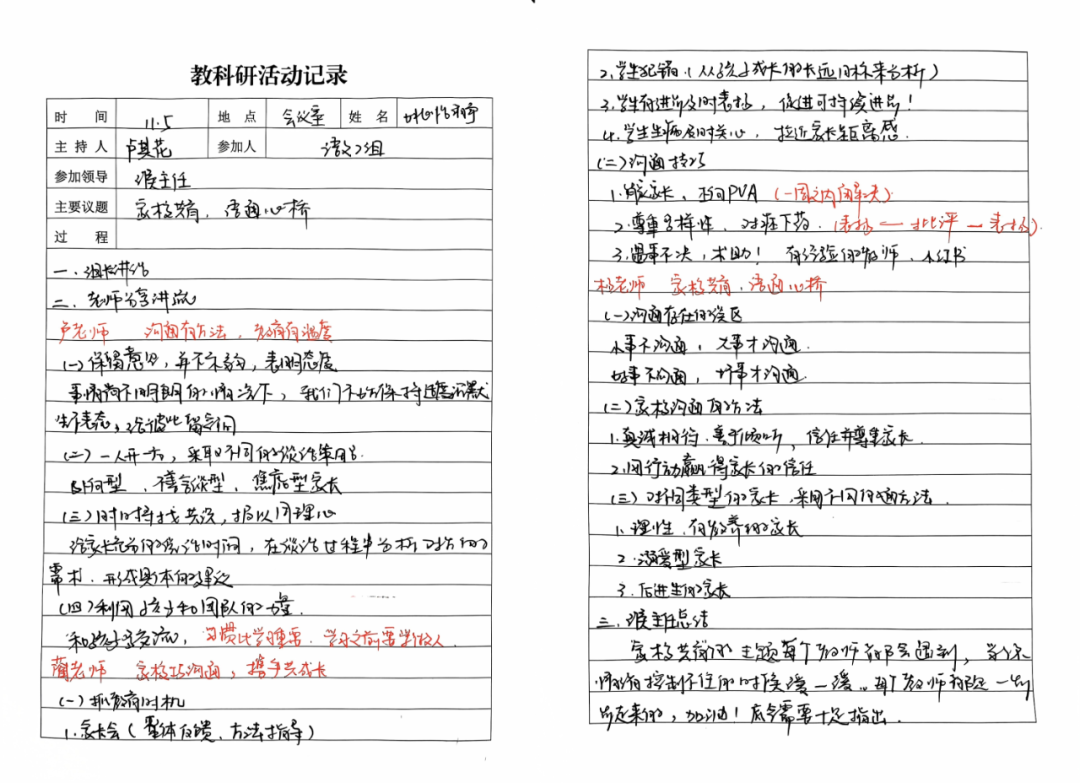 教科研活动记录
时 间 11.5 地 点 会议室 姓 名
主 持 人 卢其花 参加人 语文2组
参加领导 主任
主要议题 家校共育，语通心桥
过 程
一、组长讲话
二、老师分享讲流
卢老师 沟通有方法，教育有温度
(一)保留意见，并不承诺，表明态度
事情尚不明朗的情况下，我们不妨保持适当沉默
先不表态，给彼此留空间
(二)一人一方，采取不同的谈话策略
型，健谈型，焦虑型家长
(三)时时寻找共识，报以同理心
给家长充分的谈话时间，在谈话过程中分析对方的
需求，形成具体的建议
(四)利用孩子和团队的力量
和孩子多交流，习惯比学习重要，学习之前要学做人
蔺老师 家校巧沟通，携手共成长
(一)抓教育时机
1.家长会(整体反馈、方法指导)
2.学生犯错(从孩子成长的长远目标来分析)
3.学生有进步及时表扬，促进可持续进步!
4.学生生病及时关心，拉近家长距离感
(二)沟通技巧
1.家长，PVA(一周之内解决)
2.尊重多样性，对症下药(表扬—批评—表扬)
3.遇事不决，求助! 有经验的教师、小红书
杨老师 家校共育，语通心桥
(一)沟通存在的误区
小事不沟通，大事才沟通
好事不沟通，坏事才沟通
(二)家校沟通的方法
1.真诚相待，善于倾听，信任并尊重家长
2.用行动赢得家长的信任
(三)对不同类型的家长，采用不同的沟通方法
1.理性、有教养的家长
2.溺爱型家长
3.后进生的家长
三、主任总结
家校共育的主题每个教师都会遇到，当你
情绪控制不住的时候缓一缓。每个教师都是一步
步走来的，加油! 底气需要十足指出。